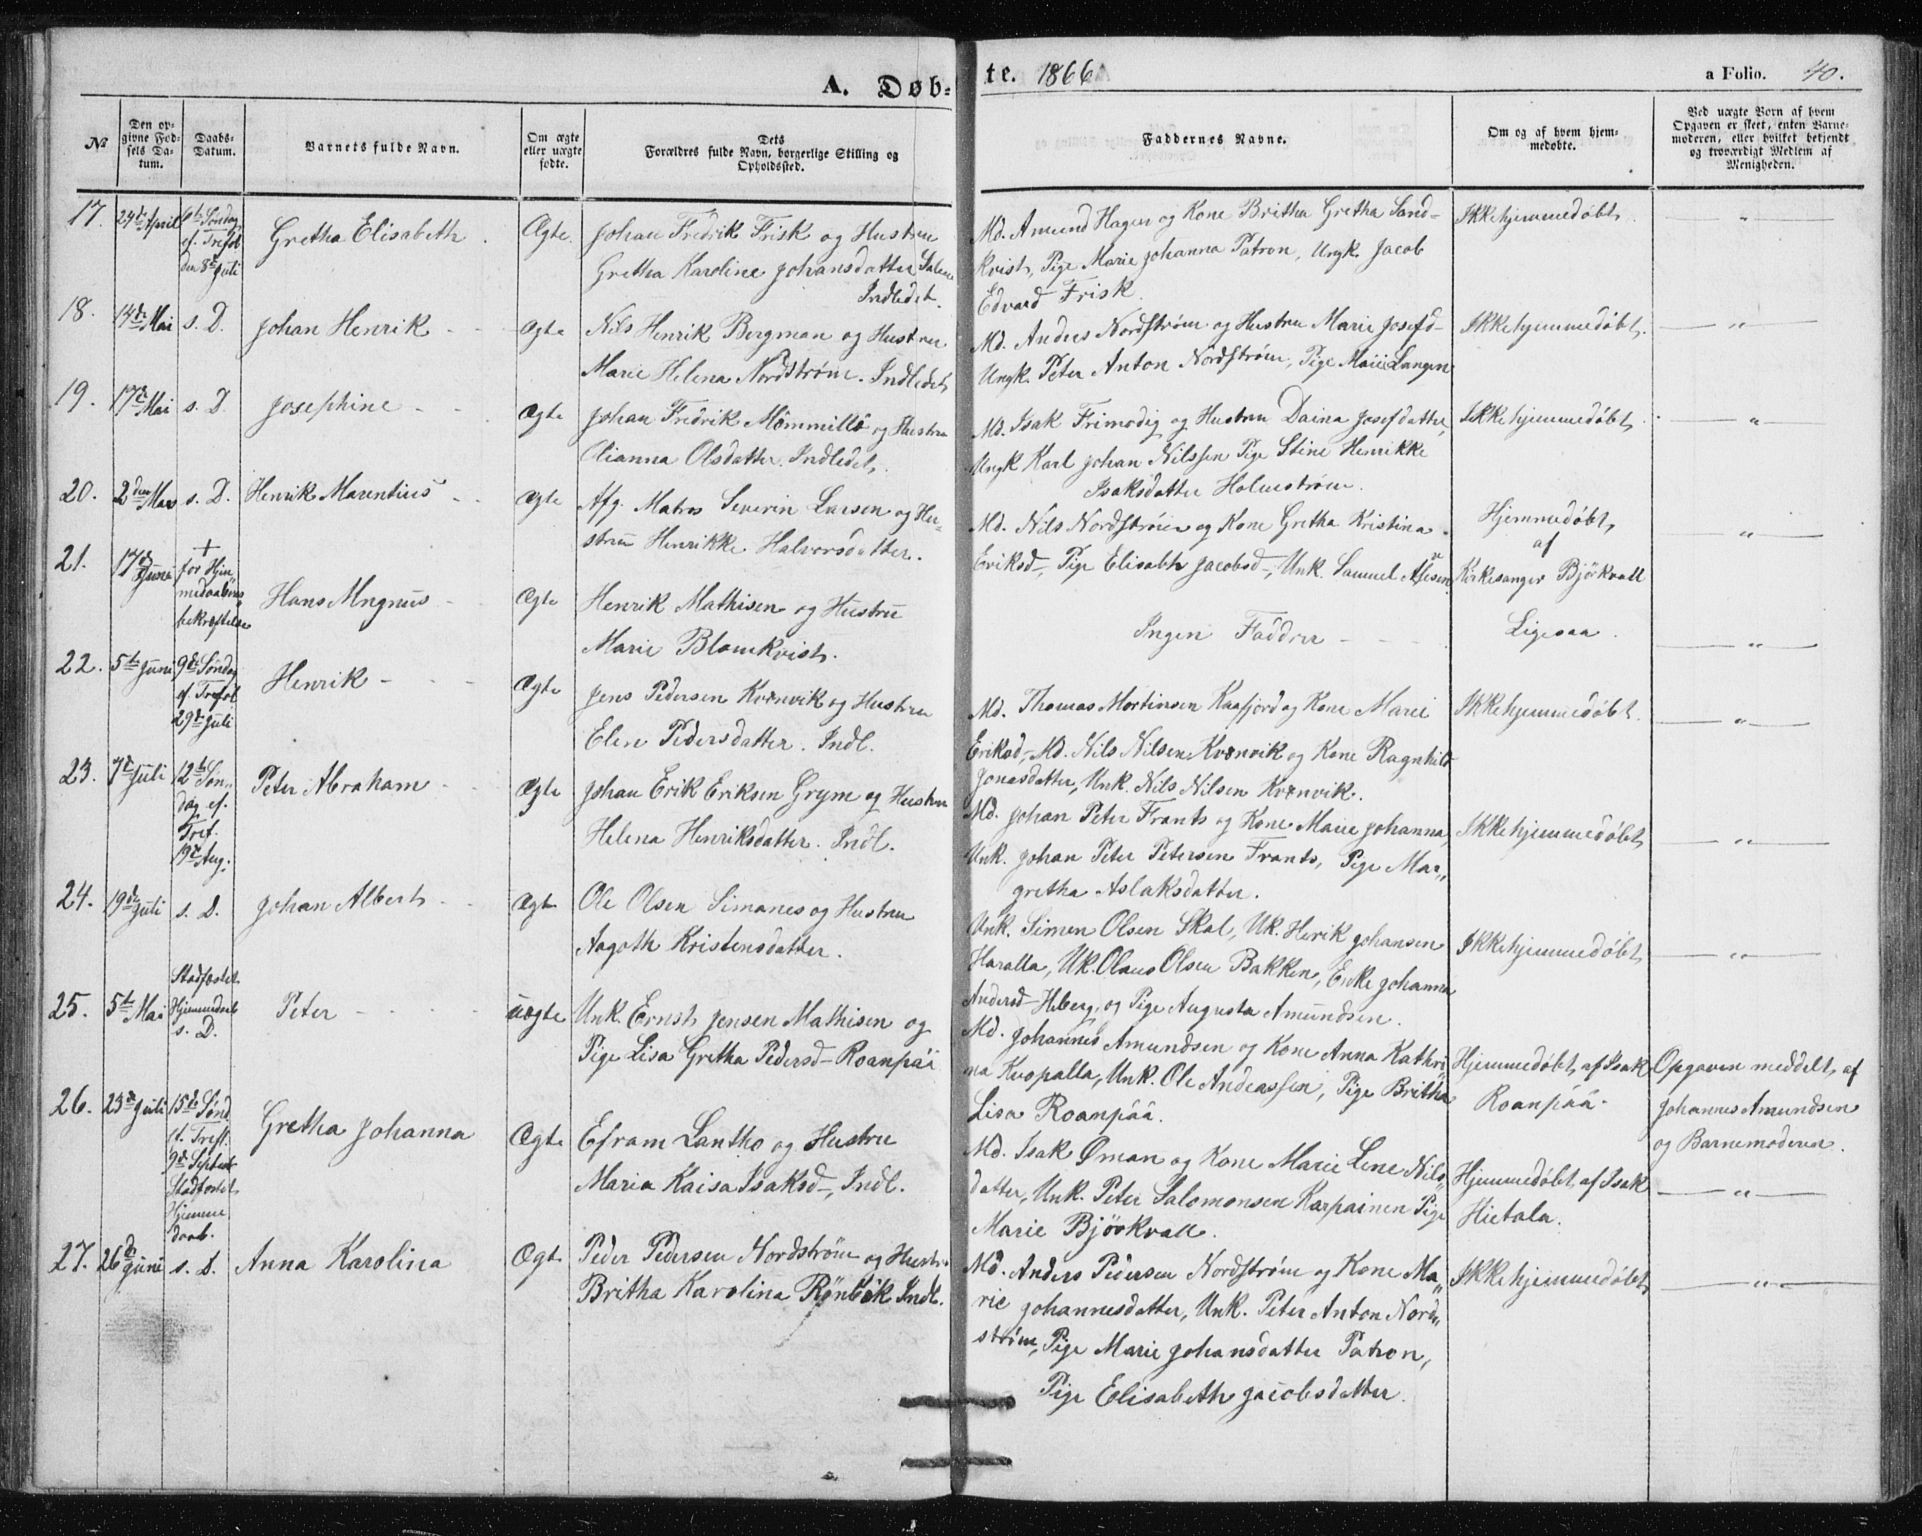 A. Døb-
te. 1866
a Folio. 40.
№
Den op-
givne Fød-
sels Da-
tum.
Daabs-
Datum.
Barnets fulde Navn.
Om ægte
eller uægte
fødte.
Dets
Forældres fulde Navn, borgerlige Stilling og
Opholdssted.
Faddernes Navne.
Om og af hvem hjem-
medøbte.
Ved uægte Børn af hvem
Opgaven er skeet, enten Barne-
moderen, eller hvilket bekjendt
og troværdigt Medlem af
Menigheden.
17. 24de April
6te Søndag
ef. Trefol
den 8de Juli
Gretha Elisabeth
Ægte
Johan Fredrik Frisk og Hustru
Gretha Karoline Johansdatter
Indledet.
Md. Amund Hagen og Kone Britha Gretha Sand-
kvist, Pige Marie Johanna Patron, Ungk. Jacob
Edvard Frisk
Ikkehjemmedøbt
— " —
18. 14de Mai
s. D.
Johan Henrik
Ægte
Nils Henrik Bergman og Hustru
Marie Helena Nordstrøm. Indledet
Md. Anders Nordstrøm og Hustru Marie Josefd-
Ungk. Peter Anton Nordstrøm, Pige Marie Langen
Ikkehjemmedøbt.
— " —
19. 17de Mai
s. D.
Josephine
Ægte
Johan Fredrik Mömmillö og Hustru
Olianna Olsdatter. Indledet.
Md. Isak Frimodig og Hustru Daina Josefdatter,
Ungk Karl Johan Nilssen Pige Stine Henrikke
Isaksdatter Holmstrøm.
Ikkehjemmedøbt
— " —
20. 2den Mar
s. D.
Henrik Marentius
Ægte
Afg. Matros Severin Larsen og Hu-
stru Henrikke Halvorsdatter.
Md. Nils Nordstrøm og Kone Gretha Kristina
Eriksd-, Pige Elisabth Jacobsd-, Unk. Samuel
Hjemmedøbt
af
Kirkesanger Björkvall
— " —
21. 17de Juni
+
for Hjem
medaabens
bekræftelse
Hans Mngnus
Ægte
Henrik Mathisen og Hustru
Marie Blomkvist.
Ingen Faddrer
Ligesaa.
— " —
22. 5te Juni
9de Søndag
ef. Trefol
29de Juli
Henrik
Ægte
Jens Pedersen Kvænvik og Hustru
Elen Pedersdatter. Indl.
Md. Thomas Mortinsen Kaafjord og Kone Marie
Eriksd-, Md. Nils Nilsen Kvænvik og Kone Ragnhild
Jonasdatter, Unk. Nils Nilsen Kvænvik.
Ikkehjemmedøbt
— " —
23. 7de Juli
12te Søn-
dag ef.
Tref.
19de Aug.
Peter Abraham
Ægte
Johan Erik Eriksen Grym og Hustru
Helena Henriksdatter. Indl.
Md. Johan Peter Frants og Kone Marie Johanna,
Unk. Johan Peter Petersen Frants, Pige Mar-
gretha Aslaksdatter.
Ikkehjemmedøbt
— " —
24. 19de Juli
s. D.
Johan Albert
Ægte
Ole Olsen Simanes og Hustru
Aagoth Kristensdatter.
Unk. Simen Olsen Skal, Uk. Herik Johansen
Haralla, Uk. Olaus Olsen Bakken, Enke Johanna
Andersd- Heberg, og Pige Augusta Amundsen.
Ikkehjemmedøbt
— " —
25. 5te Mai
Stadfæstet
Hjemmedaab
s. D.
Peter
uægte
Unk. Ernst Jensen Mathisen og
Pige Lisa Gretha Pedersd- Roanpää
Md. Johannes Amundsen og Kone Anna Kathri-
na Kuopalla, Unk. Ole Andreassen, Pige Britha
Lisa Roanpää.
Hjemmedøbt af Isak
Roanpää.
Opgaven meddelt af
Johannes Amundsen
og Barnemoderen.
26. 23de Juli
15de Sønd
ef. Tref.
9de Septemb
Stadfæstet
Hjemme
daab.
Gretha Johanna
Ægte
Efram Lantto og Hustru
Maria Kaisa Isaksd-, Indl.
Md. Isak Øman og Kone Marie Lene Nils-
datter, Unk. Peter Salomonsen Karpainen Pige
Marie Björkvall.
Hjemmedøbt af Isak
Hietala.
— " —
27. 26de Juni
s. D.
Anna Karolina
Ægte
Peder Pedersen Nordstrøm og Hustru
Britha Karolina Rönbäk Indl.
Md. Anders Pedersen Nordstrøm og Kone Ma-
rie Johannesdatter, Unk. Peter Anton Nord-
strøm, Pige Marie Johansdatter Patron,
Pige Elisabeth Jacobsdatter.
Ikkehjemmedøbt
— " —